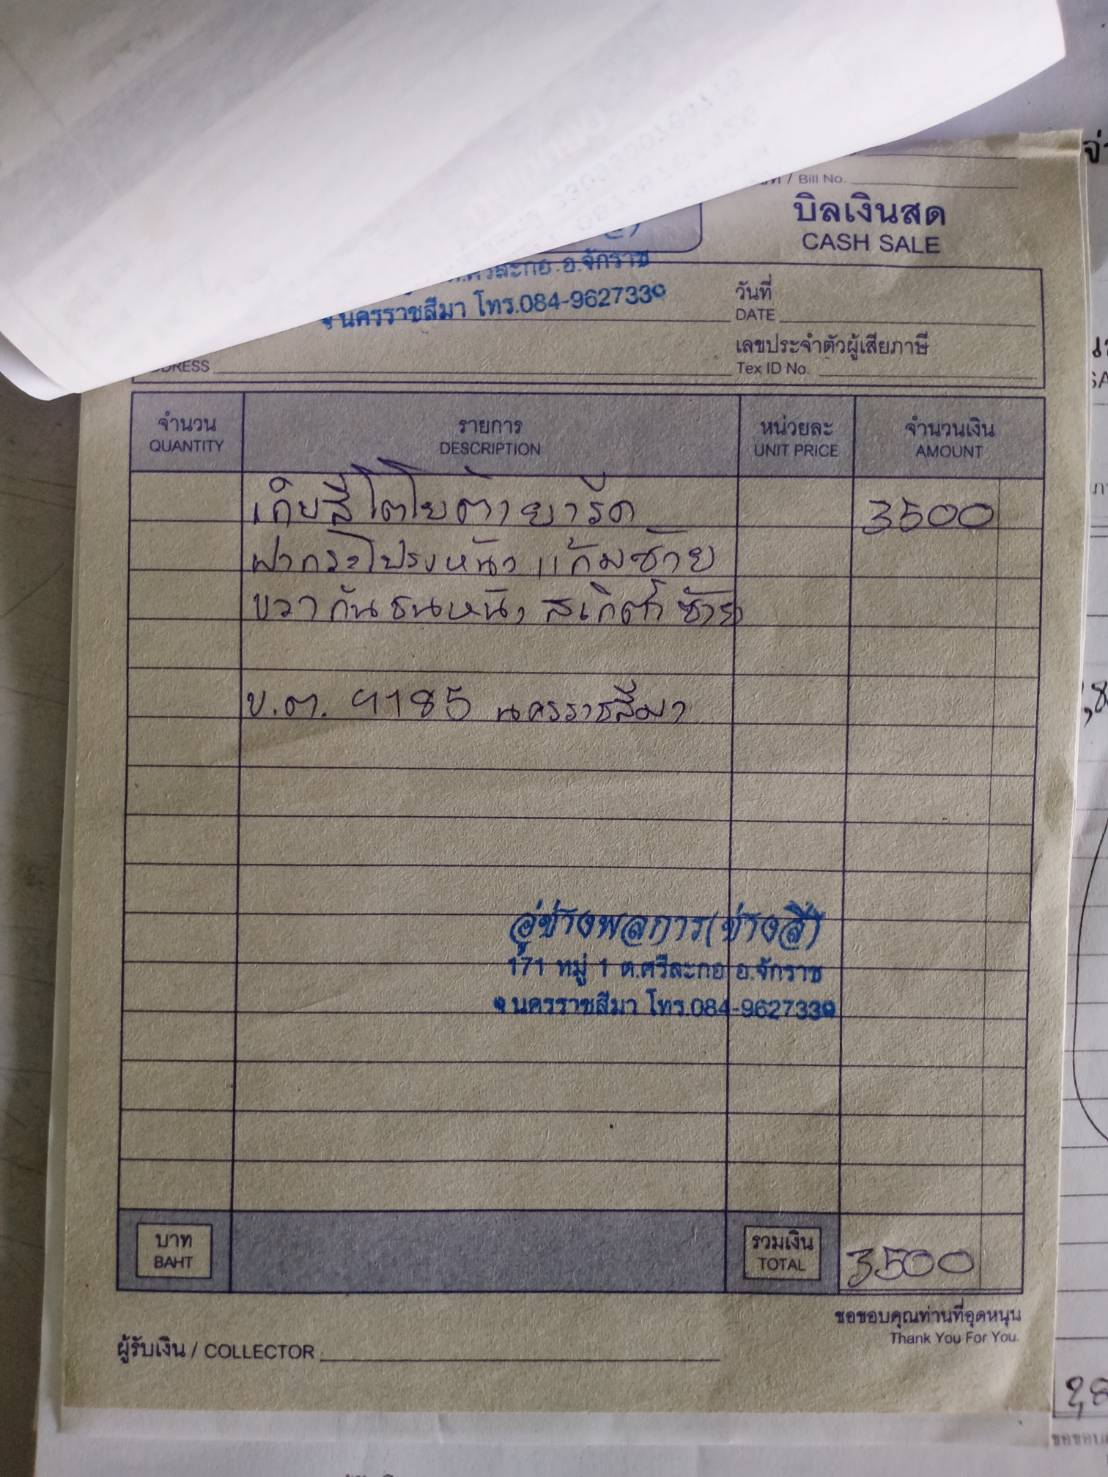 / Bill No.
บิลเงินสด
CASH SALE
ต.ศรีละกอ อ.จักราช
จ.นครราชสีมา โทร.084-9627339
วันที่
DATE
เลขประจำตัวผู้เสียภาษี
Tex ID No.
จำนวน
QUANTITY
รายการ
DESCRIPTION
หน่วยละ
UNIT PRICE
จำนวนเงิน
AMOUNT
เก็บสีโตโยต้ายารีด 3500
ฝากระโปรงหน้า แก้มซ้าย
ขวา กันชนหน้า สเกิตต์ ซ้าย
ข.ต. 9185 นครราชสีมา
อู่ช่างพลการ(ช่างสี)
171 หมู่ 1 ต.ศรีละกอ อ.จักราช
จ.นครราชสีมา โทร.084-9627339
บาท
BAHT
รวมเงิน
TOTAL
3500
ขอขอบคุณท่านที่อุดหนุน
Thank You For You.
ผู้รับเงิน / COLLECTOR